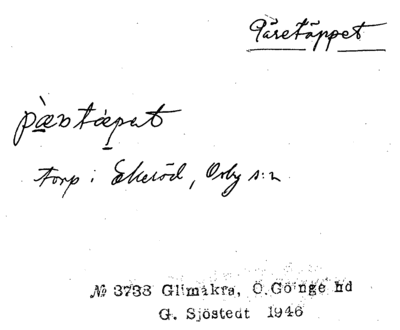 Påretäppet
torp i Ekeröd, Örby s:n
№ 3733 Glimåkra, Ö. Göinge hd
G. Sjöstedt 1946